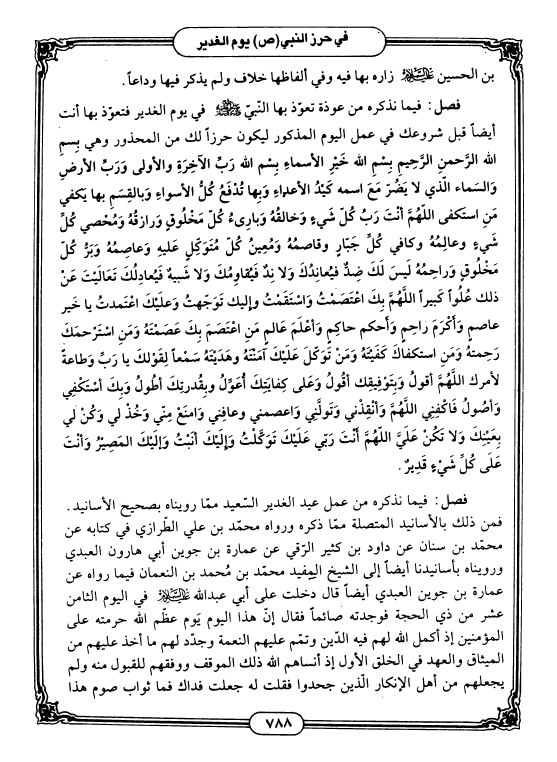 في حرز النبي (ص) يوم الغدير
بن الحسين عليه السلام زاره بها فيه وفي ألفاظها خلاف ولم يذكر فيها وداعاً.
فصل: فيما نذكره من عوذة تعوذ بها النبيّ في يوم الغدير فتعوّذ بها أنت
أيضاً قبل شروعك في عمل اليوم المذكور ليكون حرزاً لك من المحذور وهي بِسمِ
الله الرَّحمنِ الرَّحِيمِ بِسْمِ الله خَيْرِ الأسماءِ بِسْمِ الله رَبِّ الآخِرَةِ والأولى وَرَبِّ الأرضِ
وَالسماء الَّذي لا يَضُرّ مَعَ اسمه كَيْدُ الأعداءِ وَبِها تُدْفَعُ كُلُّ الأسواءِ وَبالقِسَمِ بها يَكفي
مَنِ استكفى اللَّهُمَّ أنْتَ رَبُّ كُلّ شَيءٍ وَخالقُهُ وَبارىءُ كُلّ مَخْلُوقٍ وَرازقُهُ وَمُحْصي كُلِّ
شَيءٍ وعالِمُهُ وكافي كُلِّ جَبّارٍ وقاصمُهُ وَمُعِينُ كُلّ مُتَوَكِّلٍ عَليهِ وَعاصِمُهُ وَبَرُّ كُلّ
مَخْلُوقٍ وَراحِمُهُ لَيسَ لَكَ ضِدٌّ فَيُعاندُكَ وَلا نِدٌ فَيُقاوِمُكَ وَلا شَبيهٌ فَيُعادِلُكَ تَعالَيْتَ عَنْ
ذلك عُلُواً كَبيراً اللَّهُمَّ بِكَ اعتَصَمْتُ وَاستَقَمْتُ وإليك تَوَجّهتُ وَعَليْكَ اعتَمدتُ يا خَير
عاصمٍ وَأَكْرَمَ راحِمٍ وَأحكم حاكِمٍ وَأعْلَمَ عالمٍ مَن اعْتَصَمَ بِكَ عَصَمْتَهُ وَمَنِ اسْتَرْحمَكَ
رَحِمتهُ وَمَنِ استكفاكَ كَفَيْتَهُ وَمَنْ تَوكّلَ عَلَيْكَ آمَنْتَهُ وهَدَيْتَهُ سَمْعاً لِقَوْلِكَ يا رَبِّ وَطاعةً
لأمرك اللَّهُمَّ أقولُ وَبِتَوْفيقِك أقُولُ وَعَلى كِفايَتِكَ أُعَوِّلُ وبِقُدرتِكَ أطُولُ وَبِكَ أسْتَكْفِي
وَأصُولُ فَاكْفِنِي اللَّهُمَّ وَأنْقِذْني وَتَولَّني وَاعصمني وعافِني وَامنَعْ مِنِّي وَخُذْ لي وَكُنْ لي
بِعَيْنِكَ وَلا تَكُنْ عَلَيَّ اللَّهُمَّ أنْتَ رَبّي عَلَيْكَ تَوَكَّلْتُ وَإلَيْكَ أنَبْتُ وَإلَيْكَ المَصِيْرُ وَأنْتَ
عَلَى كُلِّ شَيْءٍ قَدِيرٌ.
فصل: فيما نذكره من عمل عيد الغدير السّعيد ممّا رويناه بصحيح الأسانيد.
فمن ذلك بالأسانيد المتصلة ممّا ذكره ورواه محمّد بن علي الطّرازي في كتابه عن
محمّد بن سنان عن داود بن كثير الرّقي عن عمارة بن جوين أبي هارون العبدي
ورويناه بأسانيدنا أيضاً إلى الشيخ المِفيد محمّد بن مُحمد بن النعمان فيما رواه عن
عمارة بن جوين العبدي أيضاً قال دخلت على أبي عبدالله عليه السلام في اليوم الثامن
عشر من ذي الحجة فوجدته صائماً فقال إنّ هذا اليوم يَوم عظّم الله حرمته على
المؤمنين إذ أكمل الله لهم فيه الدّين وتمّم عليهم النعمة وجدّد لهم ما أخذ عليهم من
الميثاق والعهد في الخلق الأول إذ أنساهم الله ذلك الموقف ووفقهم للقبول منه ولم
يجعلهم من أهل الإنكار الّذين جحدوا فقلت له جعلت فداك فما ثواب صوم هذا
٧٨٨